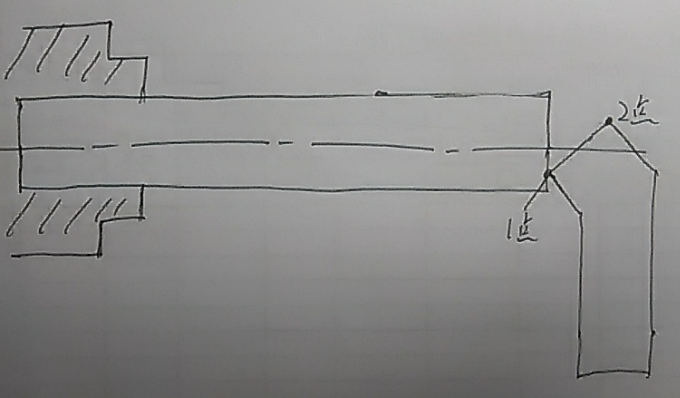 2点
1点